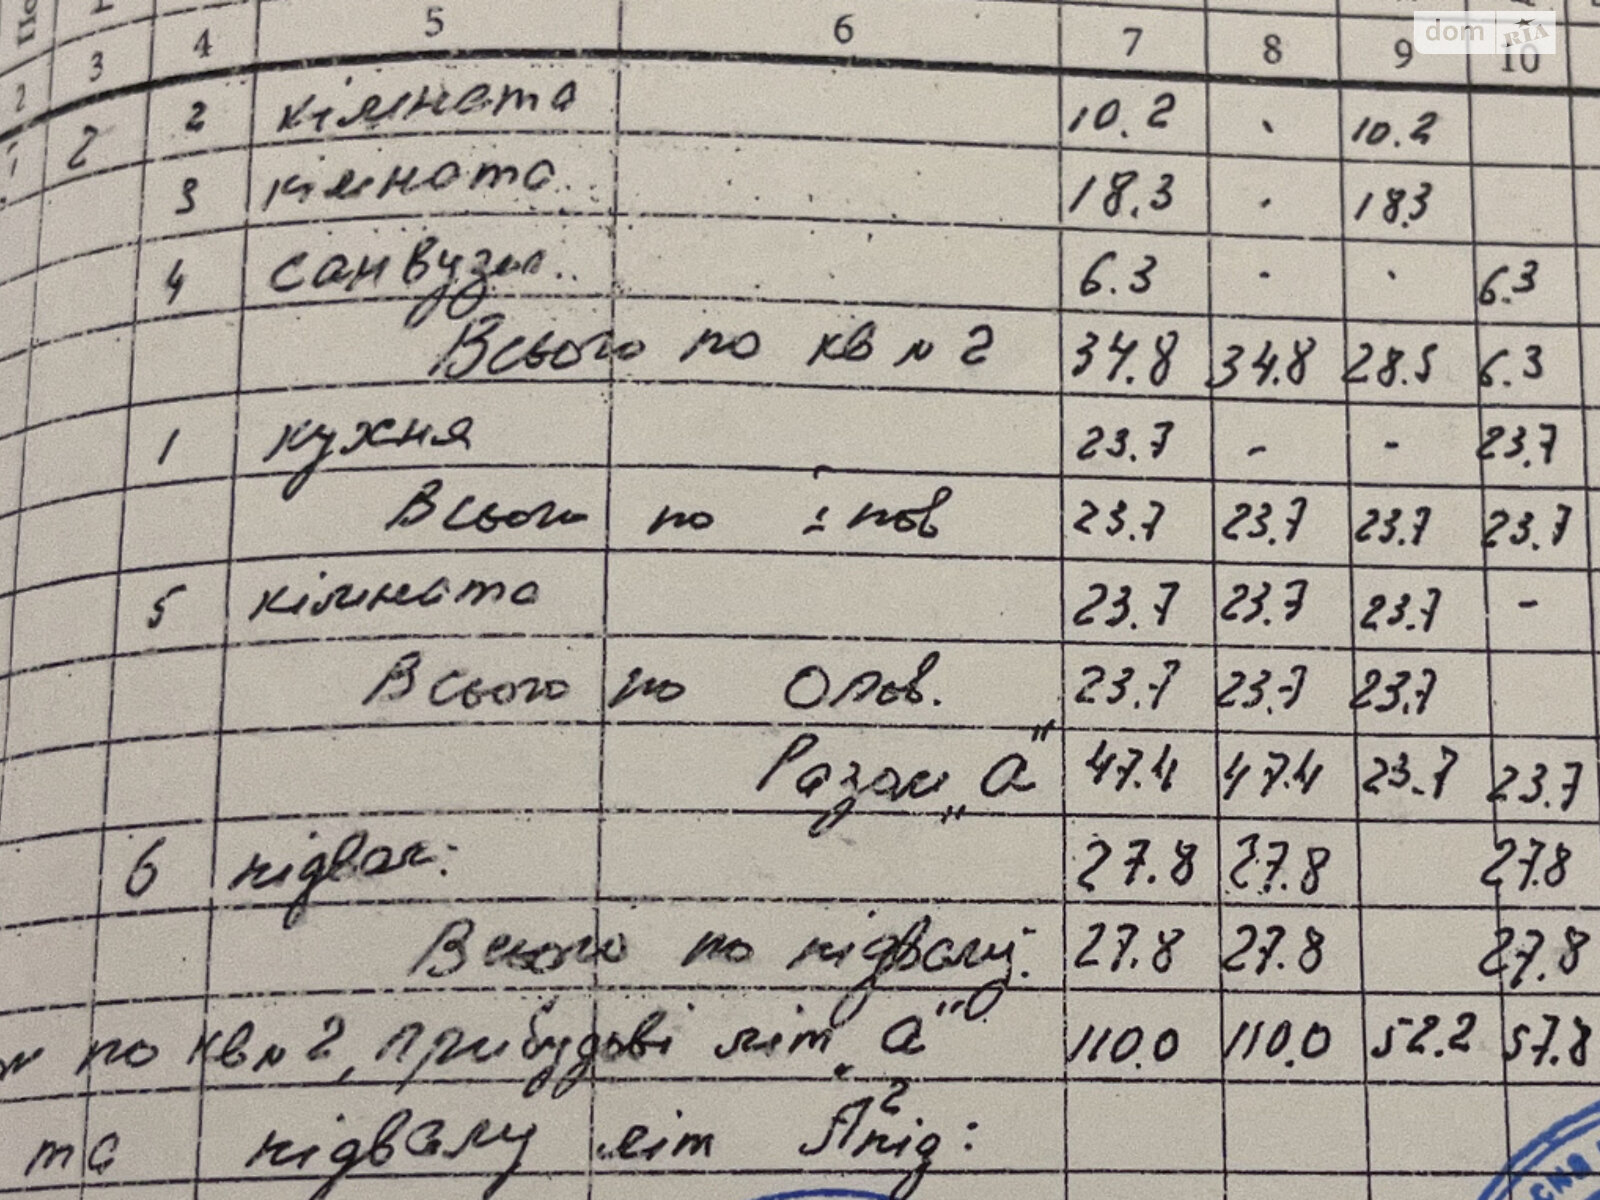 dom RIA
3 4 5 6 7 8 9 10
2 2 кімната 10.2 - 10.2
3 кімната 18.3 - 18.3
4 санвузол 6.3 - - 6.3
Всього по кв № 2 34.8 34.8 28.5 6.3
1 кухня 23.7 - - 23.7
Всього по 1 пов 23.7 23.7 23.7 23.7
5 кімната 23.7 23.7 23.7 -
Всього по 0 пов. 23.7 23.7 23.7
Разом „а" 47.4 47.4 23.7 23.7
6 підвал: 27.8 27.8 27.8
Всього по підвалу: 27.8 27.8 27.8
по кв № 2, прибудові літ „а" 110.0 110.0 52.2 57.8
та підвалу літ А² під: